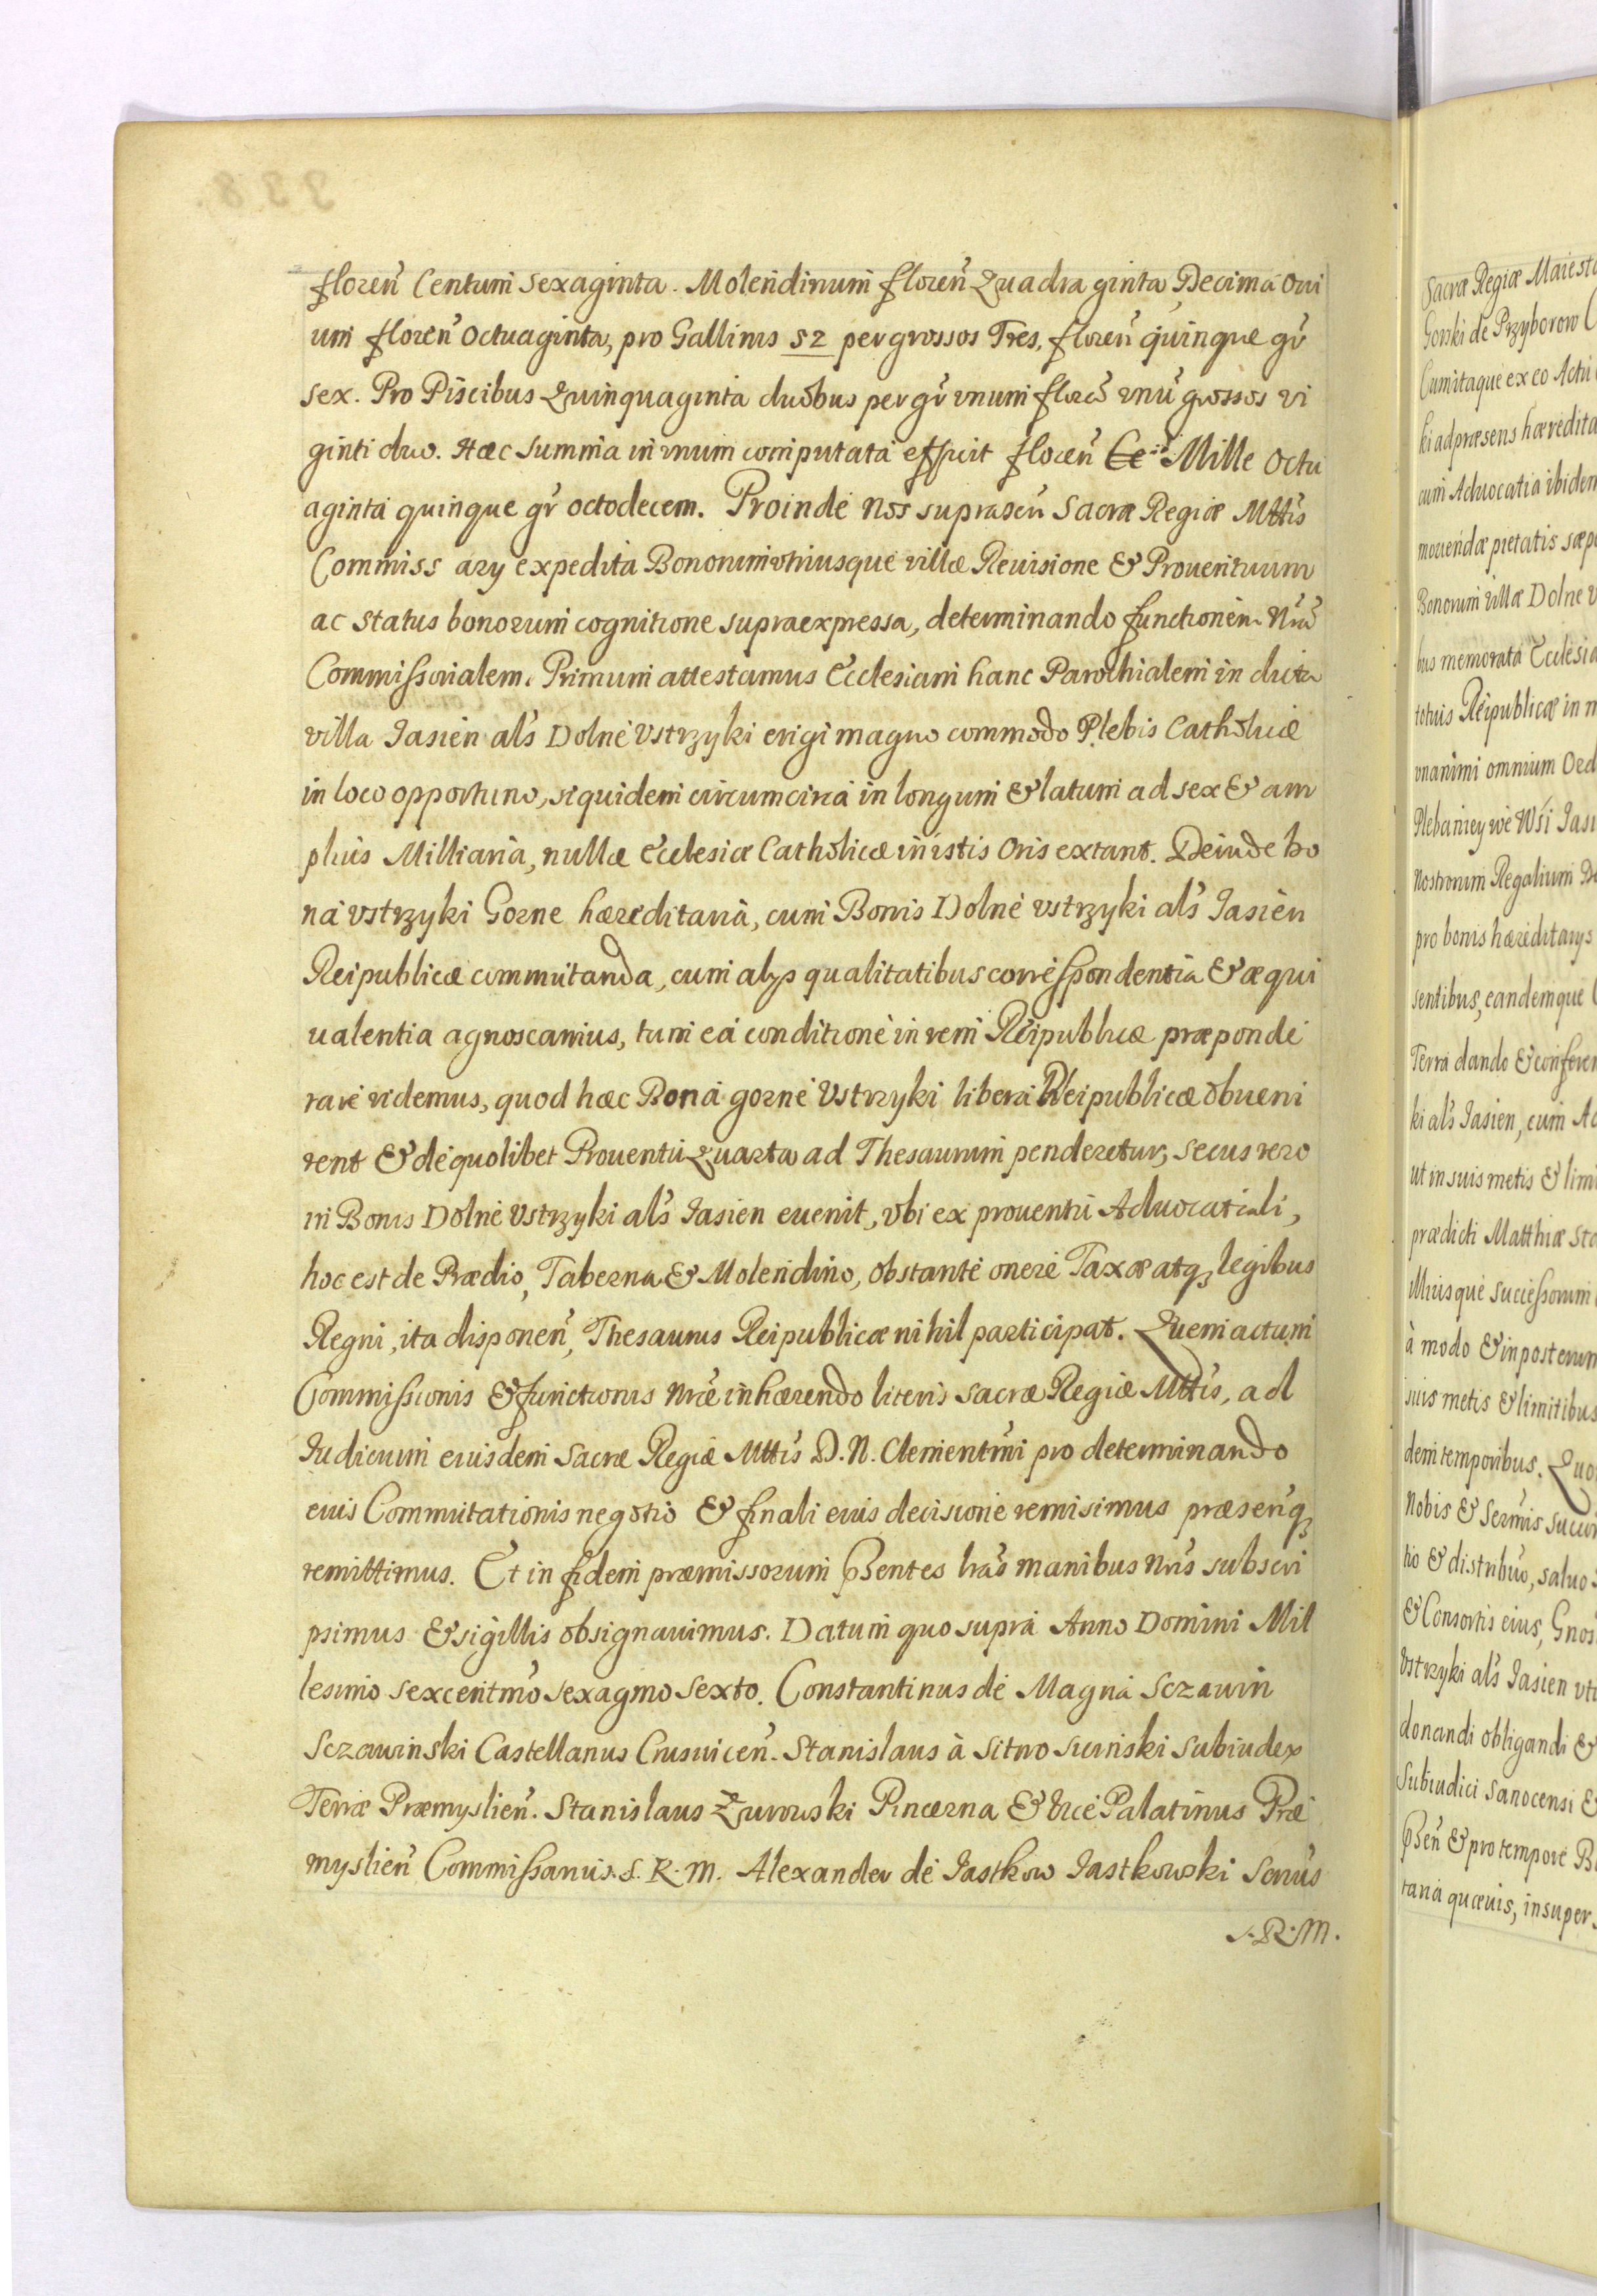 floreñ Centum sexaginta. Molendinum floreñ Quadra ginta Decima Oui
um floreñ Octuaginta, pro Gallinis 52 per grossos Tres, floreñ quinque gr̃
sex. Pro Piscibus Quinquaginta duobus per gr̃ vnum floreñ vnũ grossos vi
ginti duo. Hæc Summa in vnum computata efficit floreñ Mille Octu
aginta quinque gr̃ octodecem. Proinde Nos suprascñ Sacræ Regiæ Mttis
Commiss ary expedita Bonorum vtriusque villæ Reuisione & Prouentuum
ac status bonorum cognitione supraexpressa, determinando functionem Nrã
Commissorialem. Primum attestamus Ecclesiam hanc Parochialem in dicta
villa Jasien als Dolne Vstrzyki erigi magno commodo Plebis Catholicæ
in loco opportuno, siquidem circumcirca in longum & latum ad sex & am
plius Milliaria, nullæ Ecclesiæ Catholicæ in istis Oris extant. Deinde bo
na vstrzyki Gorne hæreditaria, cum Bonis Dolne vstrzyki als Jasien
Reipublicæ commutanda, cum alys qualitatibus correspondentia & æqui
ualentia agnoscamus, tum ea conditione in rem Reipublicæ præponde
rare videmus, quod hæc Bona gorne Vstrzyki libera Reipublicæ obueni
rent & de quolibet Prouentu Quarta ad Thesaurum penderetur, secus vero
in Bonis Dolne Vstrzyki als Jasien euenit, vbi ex prouentu Aduocatiali,
hoc est de Prædio, Taberna & Molendino, obstante onere Taxæ atq legibus
Regni, ita disponeñ, Thesaurus Reipublicæ nihil participat. Quem actum
Commissionis & functionis Nræ inhærendo literis Sacræ Regiæ Mttis, ad
Iudicium eiusdem Sacræ Regiæ Mttis D. N. Clementmi pro determinando
eius Commutationis negotio & finali eius decisione remisimus præsenq
remittimus. Et in fidem præmissorum Psentes lras manibus Nris subscri
psimus & sigillis obsignauimus. Datum quo supra Anno Domini Mil
lesimo sexcentmo sexagmo sexto. Constantinus de Magna Sczawin
Sczawinski Castellanus Crusuiceñ. Stanislaus à Sitno Suminski Subiudex
Terræ Præmyslieñ. Stanislaus Zurowski Pincerna & Vice Palatinus Præ
myslieñ Commissarius. S. R. M. Alexander de Jastkow Jastkowski Scrius
S. R. M.
Sacræ Regiæ Maiesta
Gorski de Przyborow
Cum itaque ex eo Actu
ki ad præsens hæredita
cum Aduocatia ibidem
mouendæ pietatis sæp
Bonorum villæ Dolne v
bus memorata Ecclesia
totius Reipublicæ in
vnanimi omnium Ord
Plebaniey we Wsi Jasi
Nostrorum Regalium
pro bonis hæreditarys
sentibus, eandemque
Terra dando & conferen
ki als Jasien, cum Ad
ut in suis metis & limi
prædicti Matthiæ Sta
illiusque successorum
à modo & in posterum
suis metis & limitibus
dem temporibus. Quo
Nobis & Sermis succe
tio & distribuo, saluo
& Consortis eius, Gnos
Vstrzyki als Jasien vti
donandi obligandi &
Subiudici Sanocensi &
Pseñ & pro tempore
taria quæuis, insuper